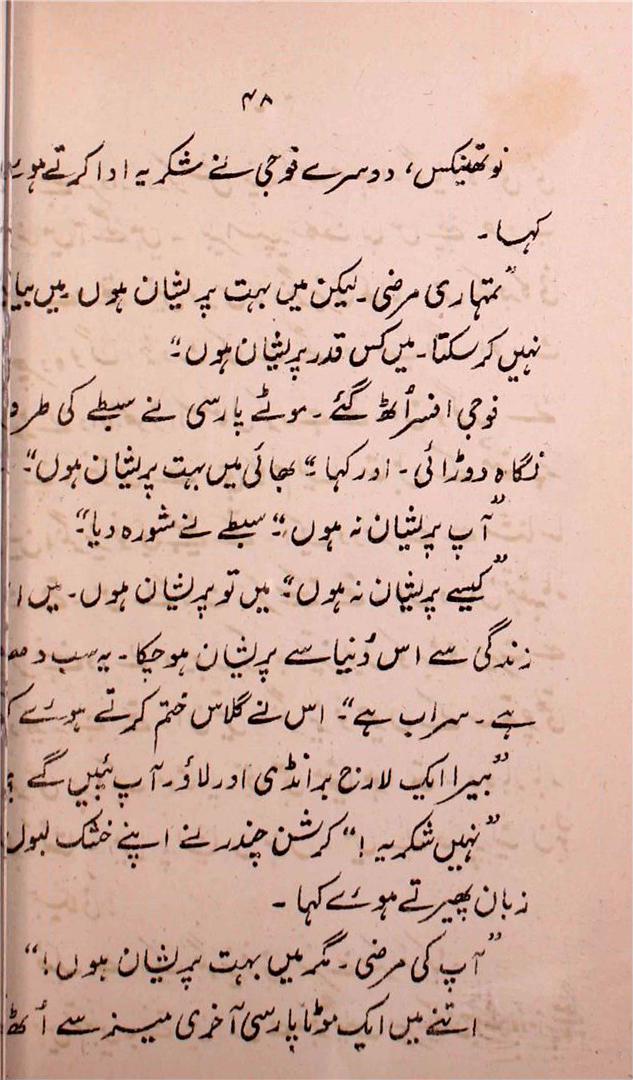 ۴۸
نو تھینکس، دوسرے فوجی نے شکریہ ادا کرتے ہوے
کہا۔
”تمہاری مرضی۔ لیکن میں بہت پریشان ہوں میں بیا
نہیں کر سکتا۔ میں کس قدر پریشان ہوں“
فوجی افسر اُٹھ گئے۔ موٹے پارسی نے سبطے کی طرف
نگاہ دوڑائی۔ اور کہا“ بھائی میں بہت پریشان ہوں“۔
”آپ پریشان نہ ہوں“۔ سبطے نے شورہ دیا“
”کیسے پریشان نہ ہوں“۔ میں تو پریشان ہوں۔ میں
زندگی سے اس دُنیا سے پریشان ہو چکا۔ یہ سب
ہے۔ سراب ہے“۔ اس نے گلاس ختم کرتے ہوے
”بیرا ایک لارج برانڈی اور لاؤ۔ آپ پئیں گے ؟
”نہیں شکریہ !“ کرشن چندر نے اپنے خشک لبوں
زبان پھیرتے ہوے کہا۔
”آپ کی مرضی۔ مگر میں بہت پریشان ہوں!“
اتنے میں ایک موٹا پارسی آخری میز سے اُٹھ